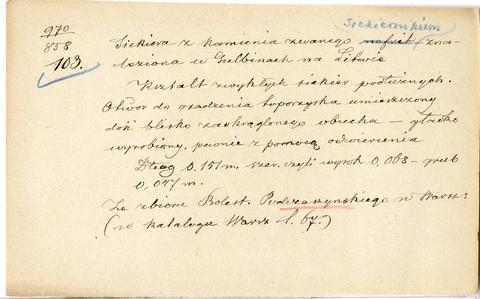 970
858
103.
Siekiera z kamienia zwanego nefrit zna-
leziona w Gelbinach na Litwie
Kształt zwykłych siekier
Otwór do osadzenia toporzyska umieszczony
dość blisko zaokrąglonego obucha – gładko
wyrobiony, pewnie z pomocą odwiercenia
Dług 0,151 m. szer. czyli wyrok 0,063 – grub
0,047 m.
Ze zbioru Bolesł. Podczaszyńskiego w Warsz:
(w katalogu Warsz l. 67.)